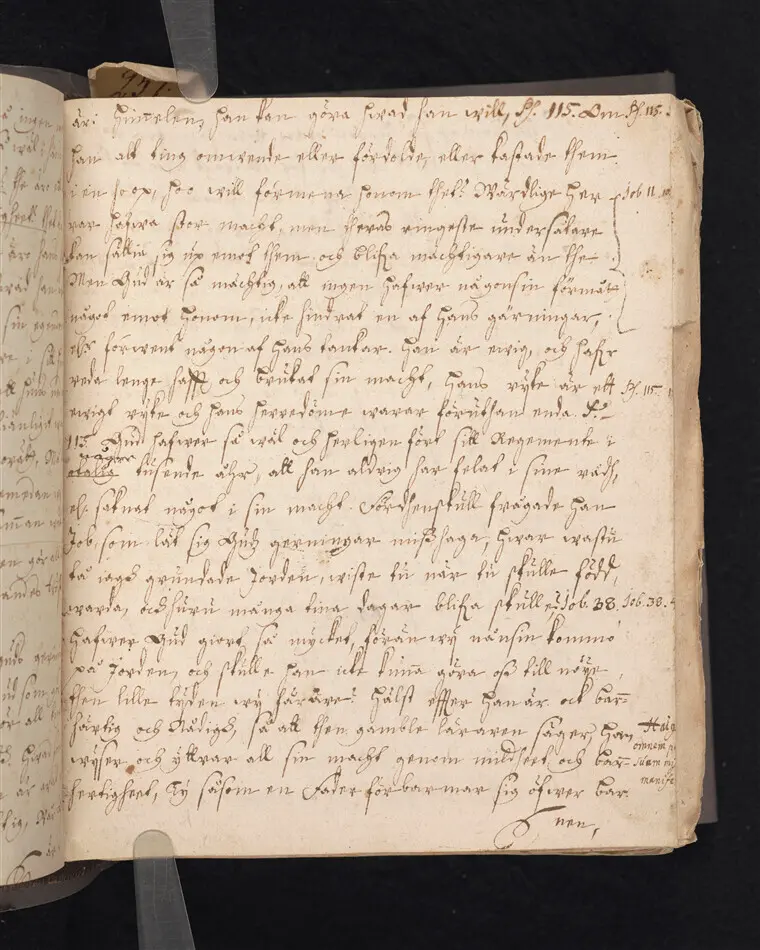 är i himmelen, han kan göra hwad han will, Ps. 115. Om Ps. 115.
han alt ting omwende eller fördolde, eller kastade them
i en hoop, hoo will förmena honom thet? Wärdlige Her Job 11. 10
rar hafwa stor macht, men theras ringeste undersåtare
kan sättia sig up emot them och blifwa mächtigare än the
Men Gud är så mächtig, att ingen hafwer någonsin förmått
något emot honom, icke hindrat en af hans gärningar,
eller förwent någon af hans tankar. Han är ewig, och hafwer
reda lenge hafft och brukat sin macht, hans ryke är ett Ps. 115
ewigt ryke och hans herredöme warar föruthan enda. Ps.
115 Gud hafwer så wäl och herligen fört sitt Regemente i
några
tusende åhr, att han aldrig har felat i sine rådh,
el. saknat något i sin macht. Fördenskull frågade han
Job, som lät sig Gudz gerningar misshaga, hwar wastu
tå iagh grundade Jorden, wiste tu när tu skulle född
warda, och huru många tina dagar blifwa skulle? Job. 38. Job. 38. 4
Hafwer Gud giort så mycket, förän wy nånsin kommo
på Jorden, och skulle han icke kunna göra oss till nöye
then lille tyden wy här äre? hälst effter han är ock barm
härtig och Nådigh, så att then gamble läraren säger, han
wysser och yttrar all sin macht genom mildheet och barm
omnem
hertigheet, Ty såsom en Fader förbarmar sig öfwer bar
nen,